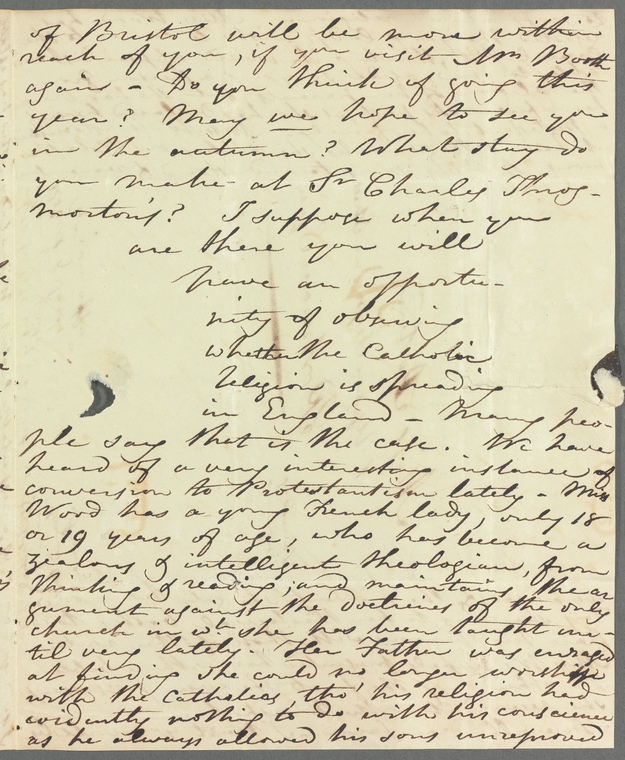 of Bristol will be more within
reach of you, if you visit Mrs Booth
again - Do you think of going this
year? May we hope to see you
in the autumn? What stay do
you make at Sr Charles Throg-
morton's? I suppose when you
are there you will
have an opportu-
nity of observing
whether the Catholic
religion is spreading
in England - Many peo-
ple say that is the case. We have
heard of a very interesting instance of
conversion to Protestantism lately - Miss
Wood has a young French lady, only 18
or 19 years of age, who has become a
zealous & intelligent theologian, from
thinking & reading; and maintains the ar
gument against the doctrines of the only
church in wh. she has been taught un-
til very lately. Her Father was enraged
at finding she could no longer worship
with the Catholics, tho' his religion had
evidently nothing to do with his conscience
as he always allowed his sons unreproved